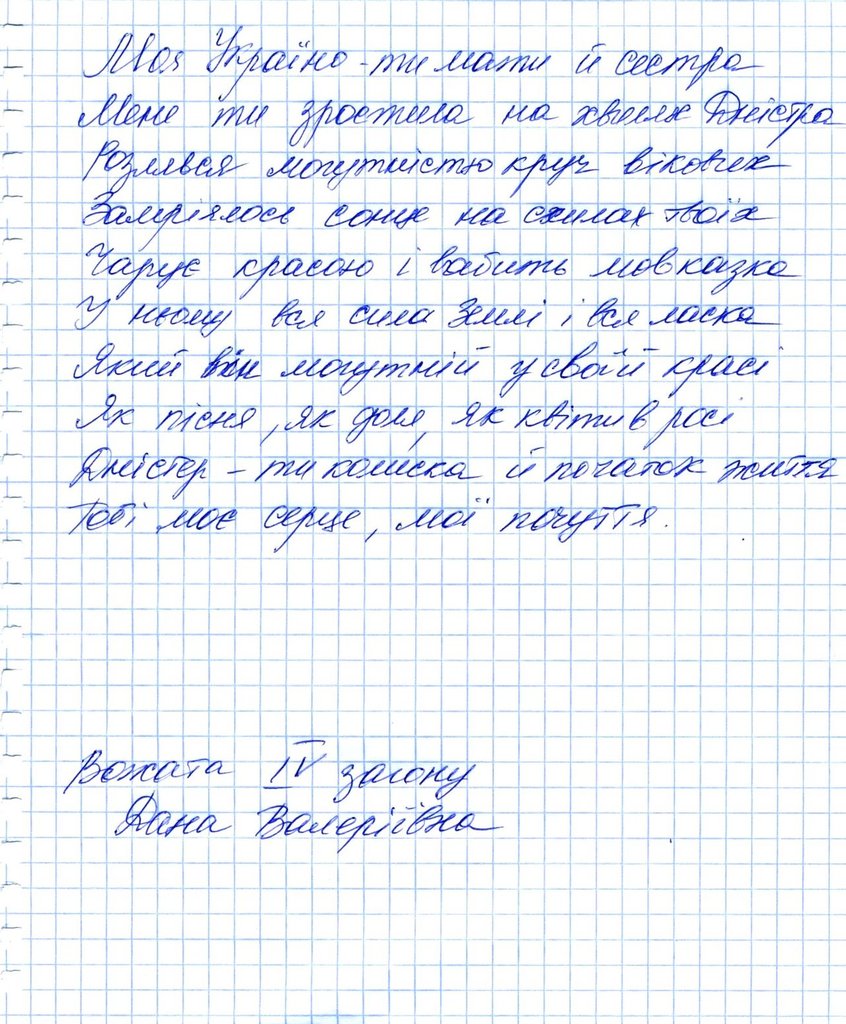 Моя Україно - ти мати й сестра
Мене ти зростила на хвилях Дністра
Розлився могутністю круч вікових
Замріялось сонце на схилах твоїх
Чарує красою і вабить мов казка
У ньому вся сила Землі і вся ласка
Який він могутній у своїй красі
Як пісня, як доля, як квіти в росі
Дністер - ти колиска й початок життя
Тобі моє серце, мої почуття.
Вожата IV загону
Дана Валеріївна